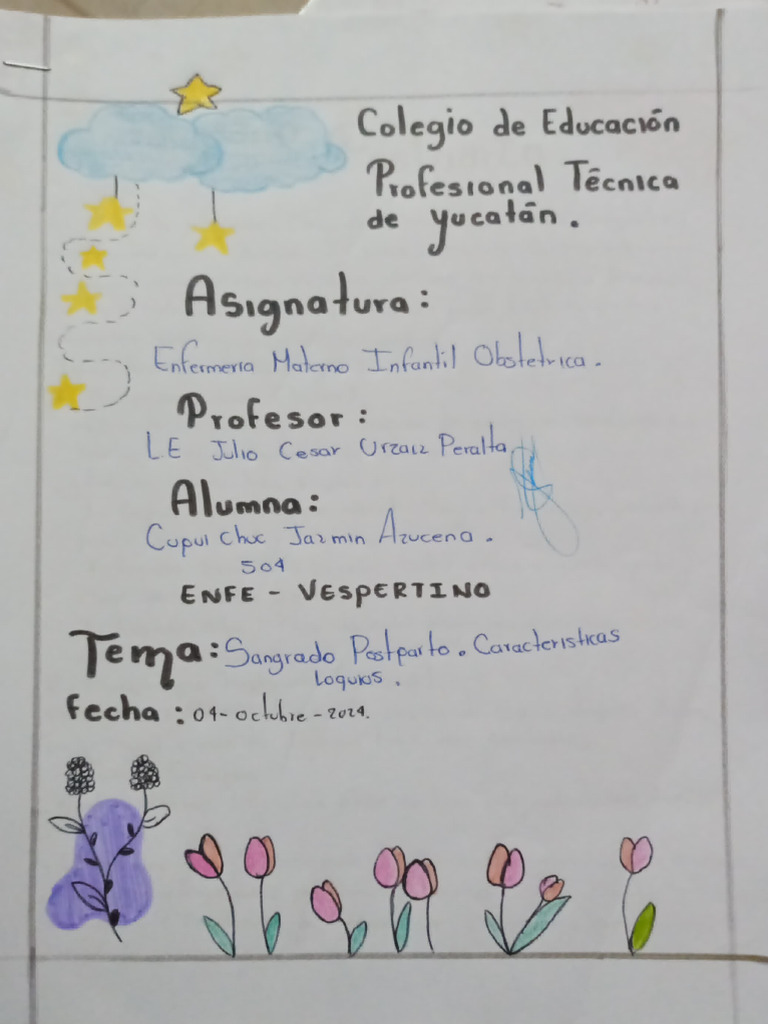 Colegio de Educación
Profesional Técnica
de Yucatán.
Asignatura:
Enfermeria Materno Infantil Obstetrica.
Profesor:
L.E Julio Cesar Urzaiz Peralta
Alumna:
Cupul Chuc Jazmin Azucena.
504
ENFE - VESPERTINO
Tema: Sangrado Postparto. Caracteristicas
loquios.
Fecha: 04-octubre-2024.